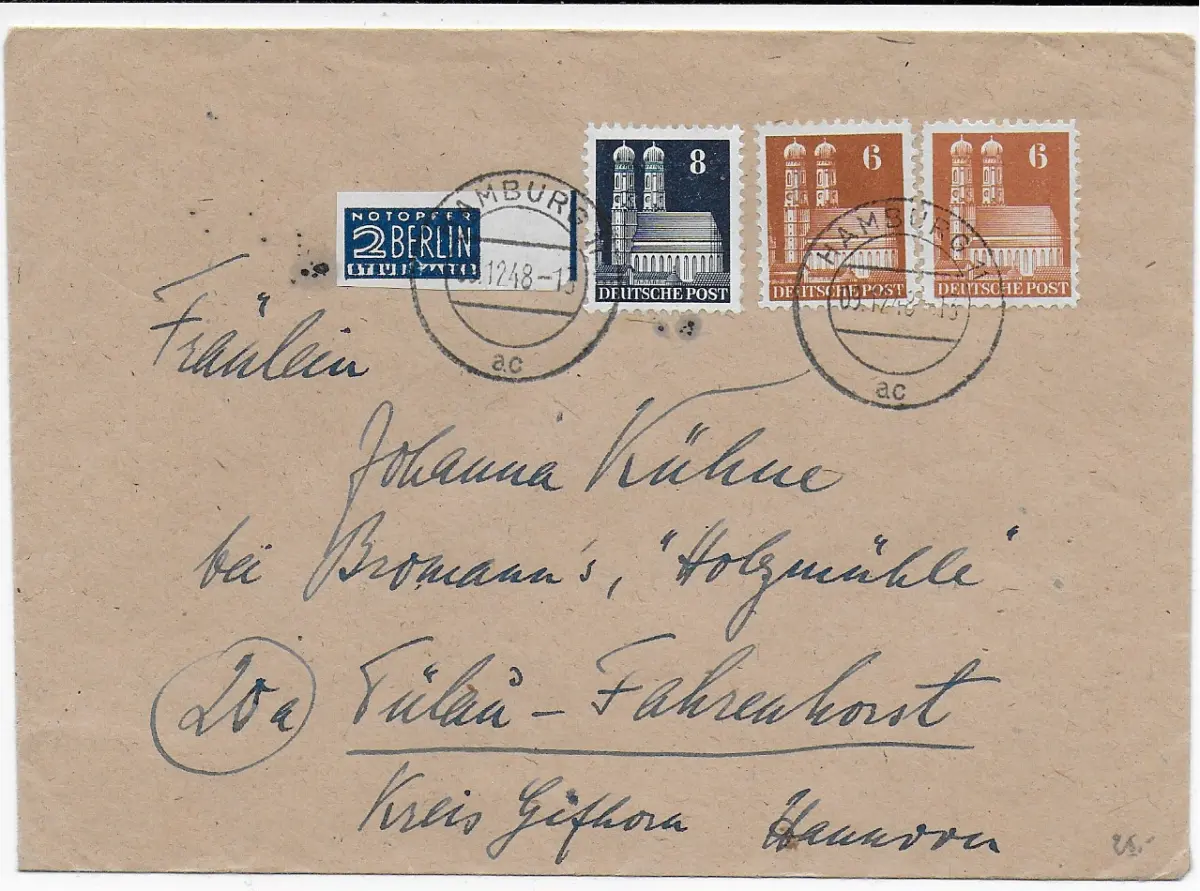 NOTOPFER
2 BERLIN
STEUERMARKE
8
DEUTSCHE POST
6
DEUTSCHE POST
6
DEUTSCHE POST
HAMBURG
.12.48-13
ac
HAMBURG
ac
Fräulein
Johanna Kühne
bei Bromann's, "Holzmühle"
20a Tülau - Fahrenhorst
Kreis Gifhorn Hannover
25.-